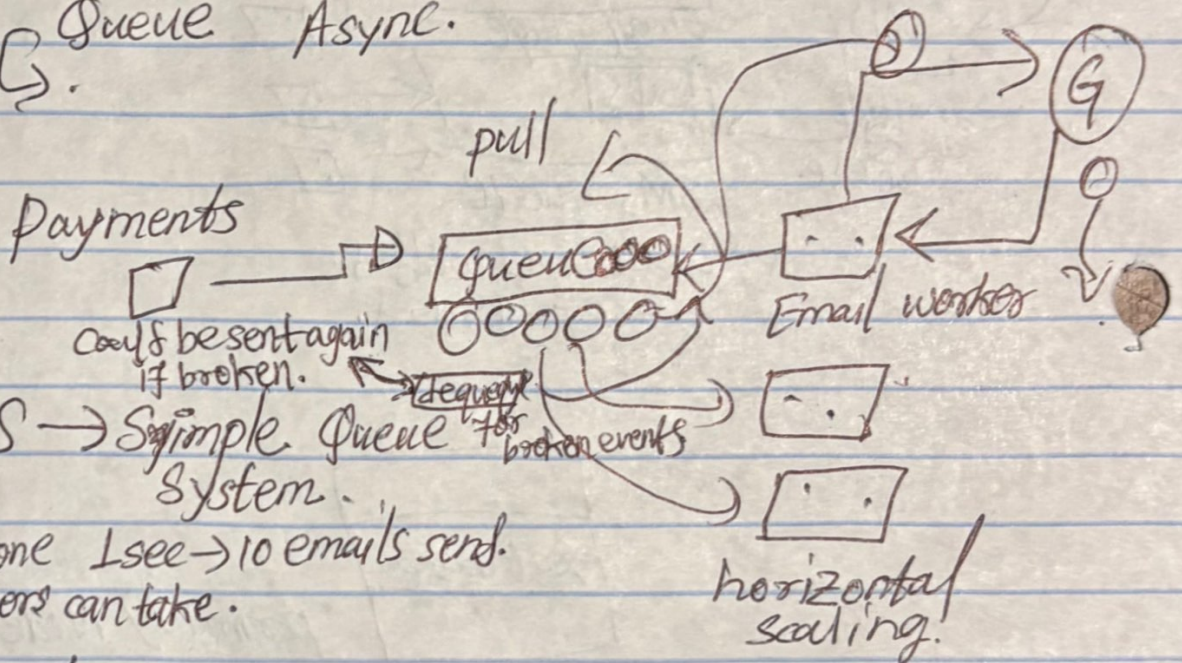 Queue Async.
pull
G
Payments
Queue
Email worker
Could be sent again
if broken.
dequeue
for
broken events
S → Simple Queue
System.
one 1 sec → 10 emails send.
ers can take.
horizontal
scaling.